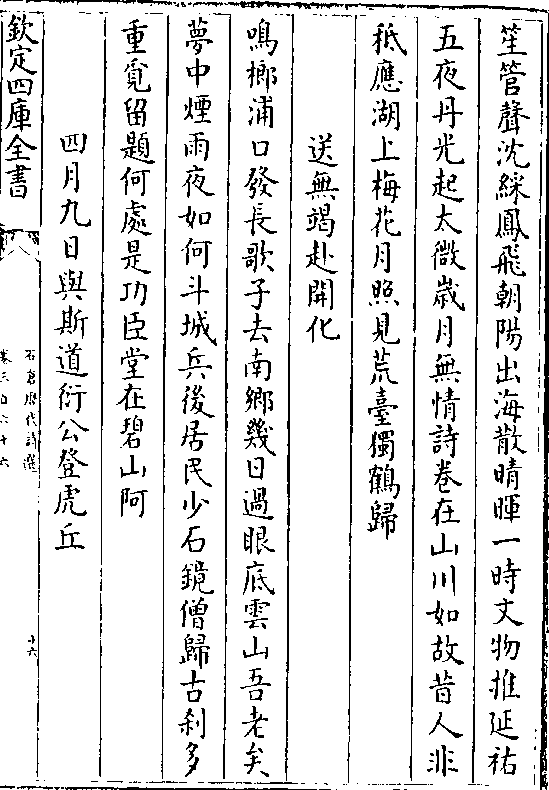 笙管聲沈綵鳳飛朝陽出海散晴暉一時文物推延祐
五夜丹光起太微歲月無情詩卷在山川如故昔人非
秪應湖上梅花月照見荒臺獨鶴歸
送無竭赴開化
鳴榔浦口發長歌子去南鄉幾日過眼底雲山吾老矣
夢中煙雨夜如何斗城兵後居民少石鏡僧歸古刹多
重覓留題何處是功臣堂在碧山阿
四月九日與斯道衍公登虎丘
欽定四庫全書
石倉歷代詩選
卷三百六十六
十六